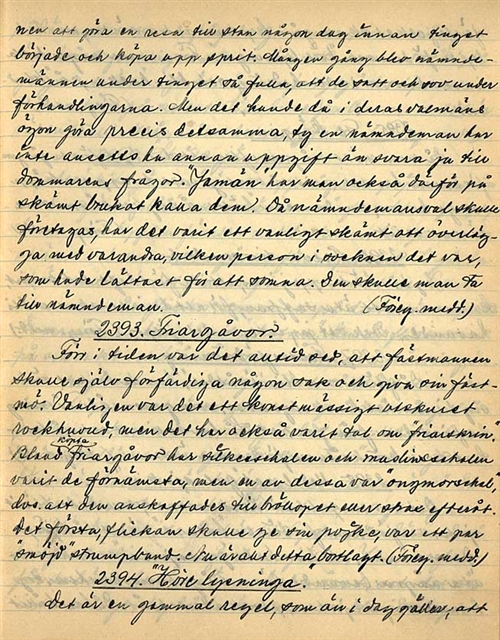 nen att göra en resa till stan någon dag innan tinget
började och köpa upp sprit. Mången gång blev nämnde-
männen under tinget så fulla, att de satt och sov under
förhandlingarna. Men det kunde då i deras valmäns
ögon göra precis detsamma, ty en nämndeman har
inte ansetts ha annan uppgift än svara ja till
domarens frågor. "Jamän har man också därför på
skämt brukat kalla dem. Då nämndemansval skulle
företagas, har det varit ett vanligt skämt att överläg-
ga med varandra, vilken person i socknen det var,
som hade lättast för att somna. Den skulle man ta
till nämndeman. (Föreg. medd.)
2393. Friargåvor.
Förr i tiden var det alltid sed, att fästmannen
skulle själv förfärdiga någon sak och giva sin fäst-
mö. Vanligen var det ett konstmässigt utskuret
rockhuvud, men det har också varit tal om "friarskrin".
Bland köpta friargåvor har silkesschalen och muslinsschalen
varit de förnämsta, men en av dessa var "ongmorschel",
dvs. att den anskaffades till bröllopet eller strax efteråt.
Det första, flickan skulle ge sin pojke, var ett par
"smöjd" strumpband. Nu är allt detta bortlagt. (Föreg. medd.)
2394. "Höre
Det är en gammal regel, som än i dag gäller, att